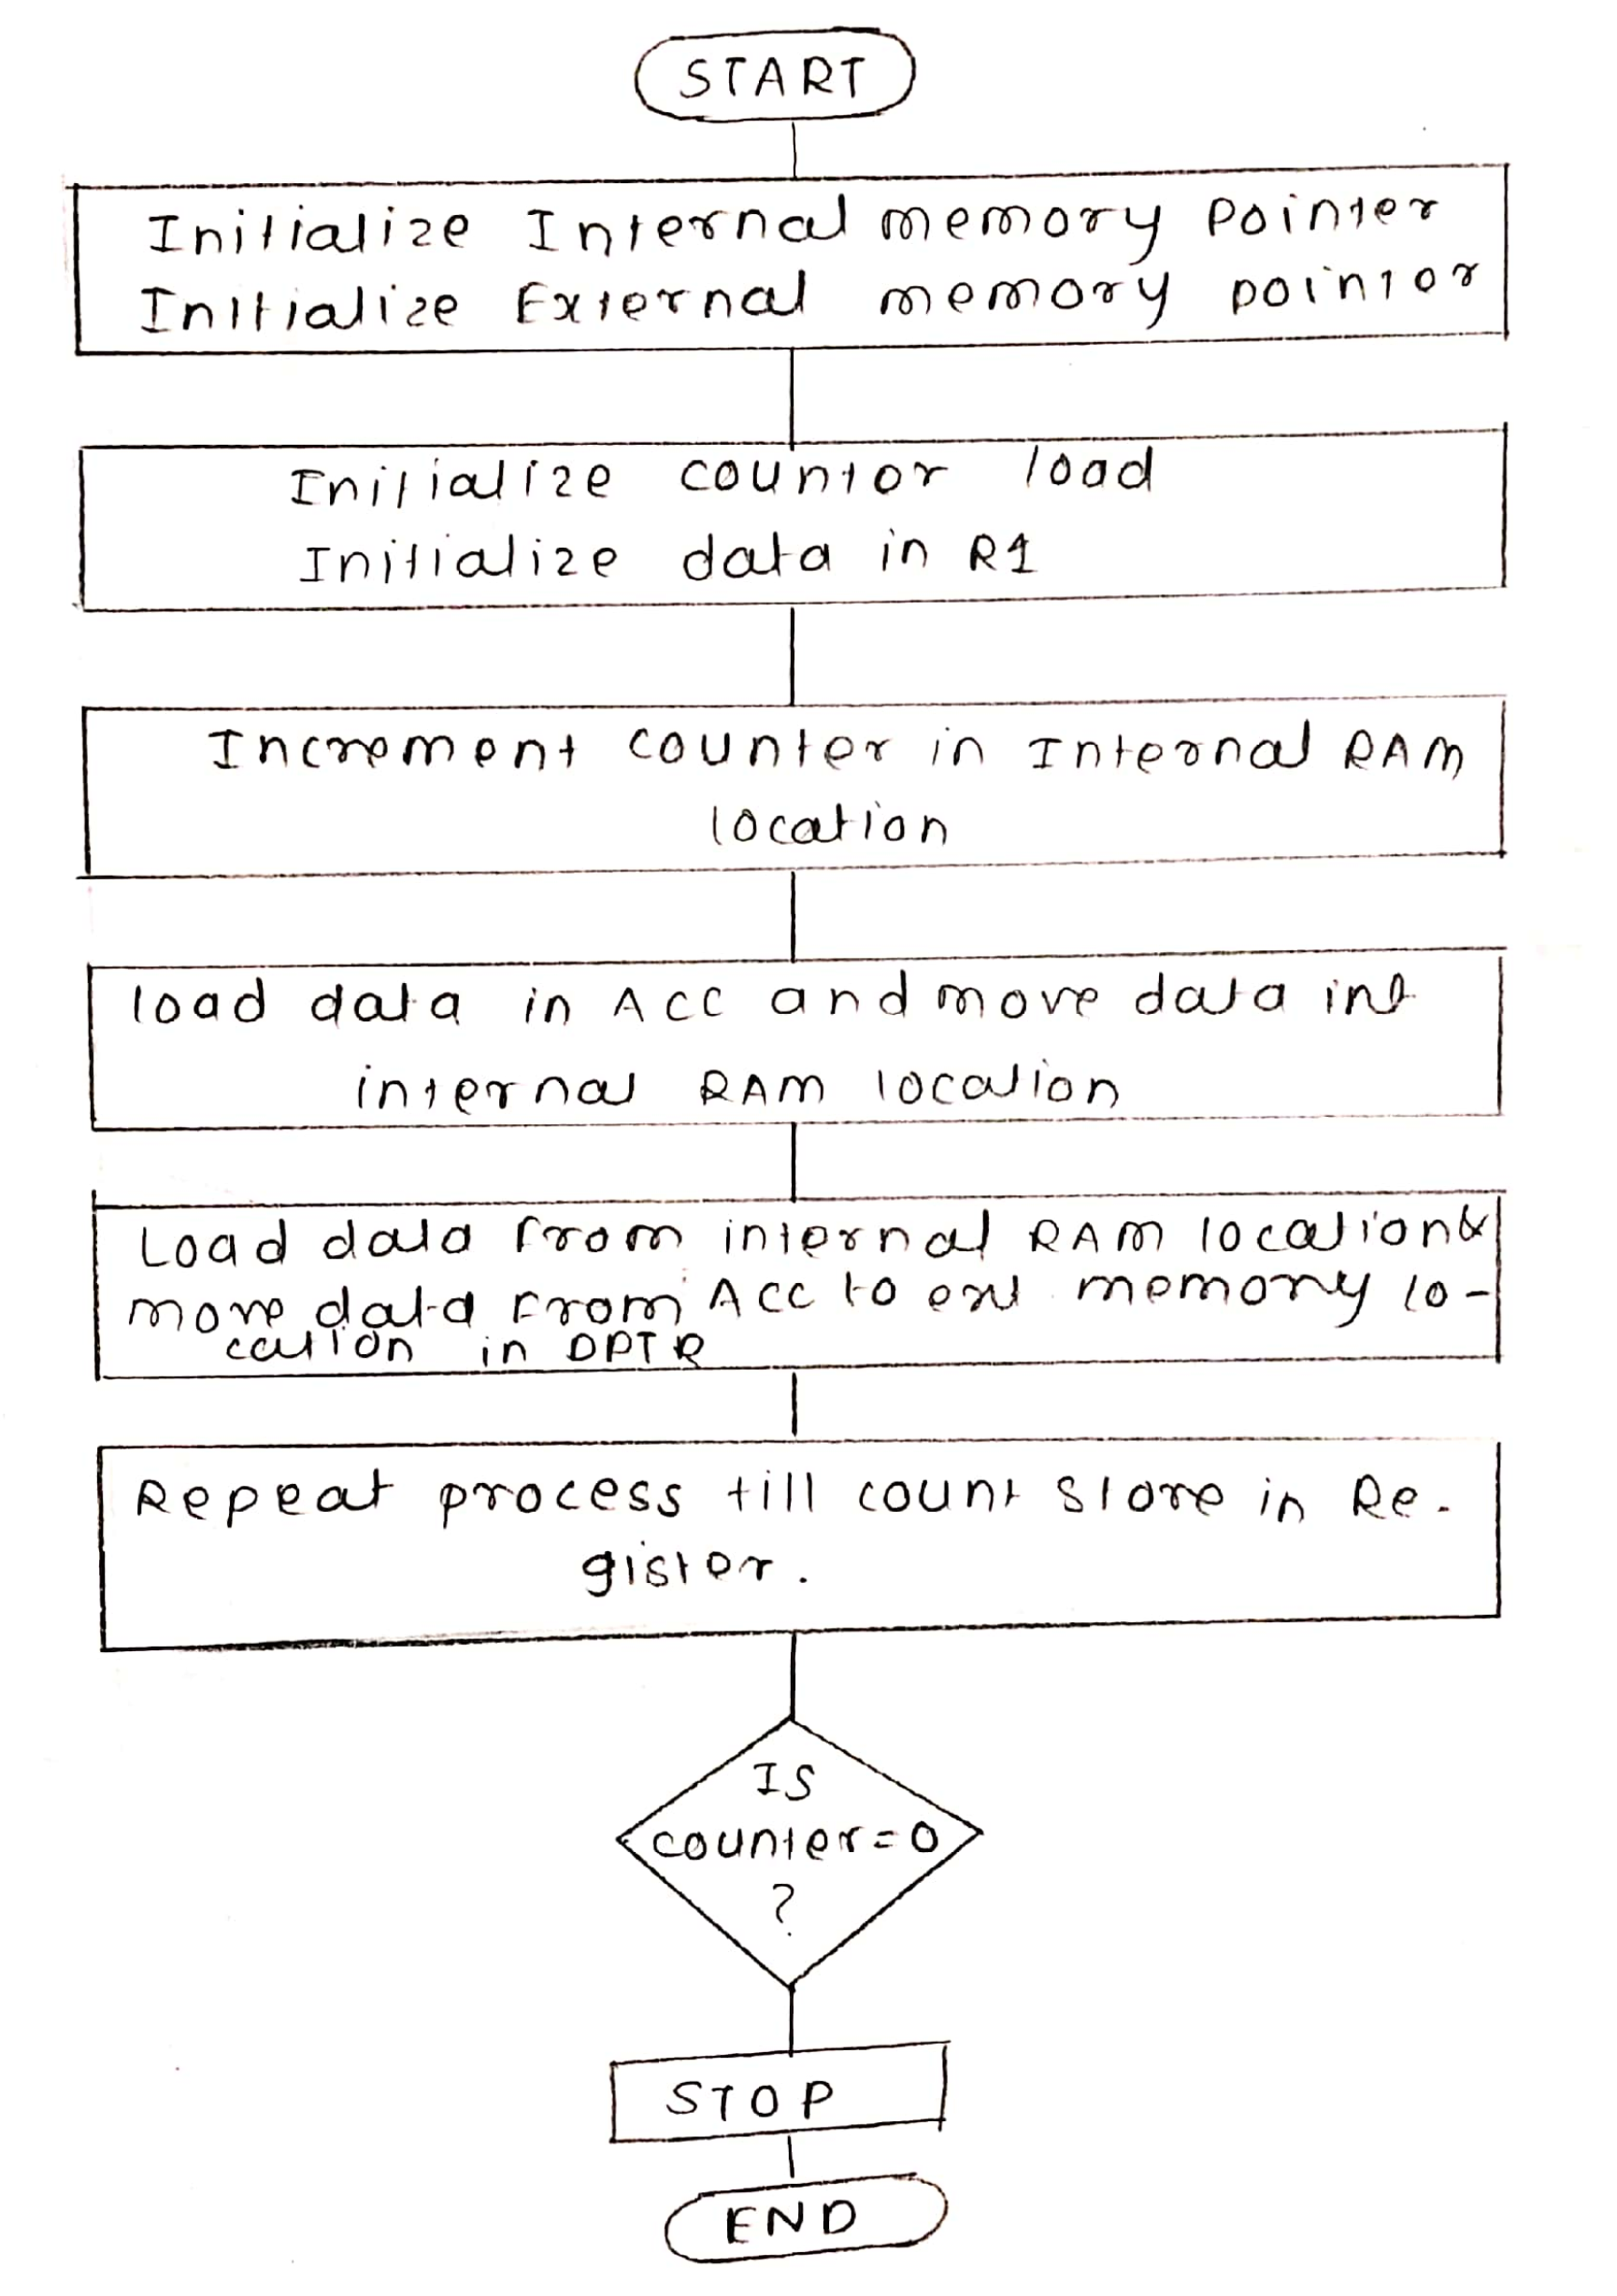 START
Initialize Internal memory pointer
Initialize External memory pointer
Initialize counter load
Initialize data in R1
Increment counter in Internal RAM
location
load data in ACC and move data int
internal RAM location
Load data from internal RAM location &
move data from ACC to ext memory lo-
cation in DPTR
Repeat process till count store in Re-
gister.
IS
counter=0
?
STOP
END